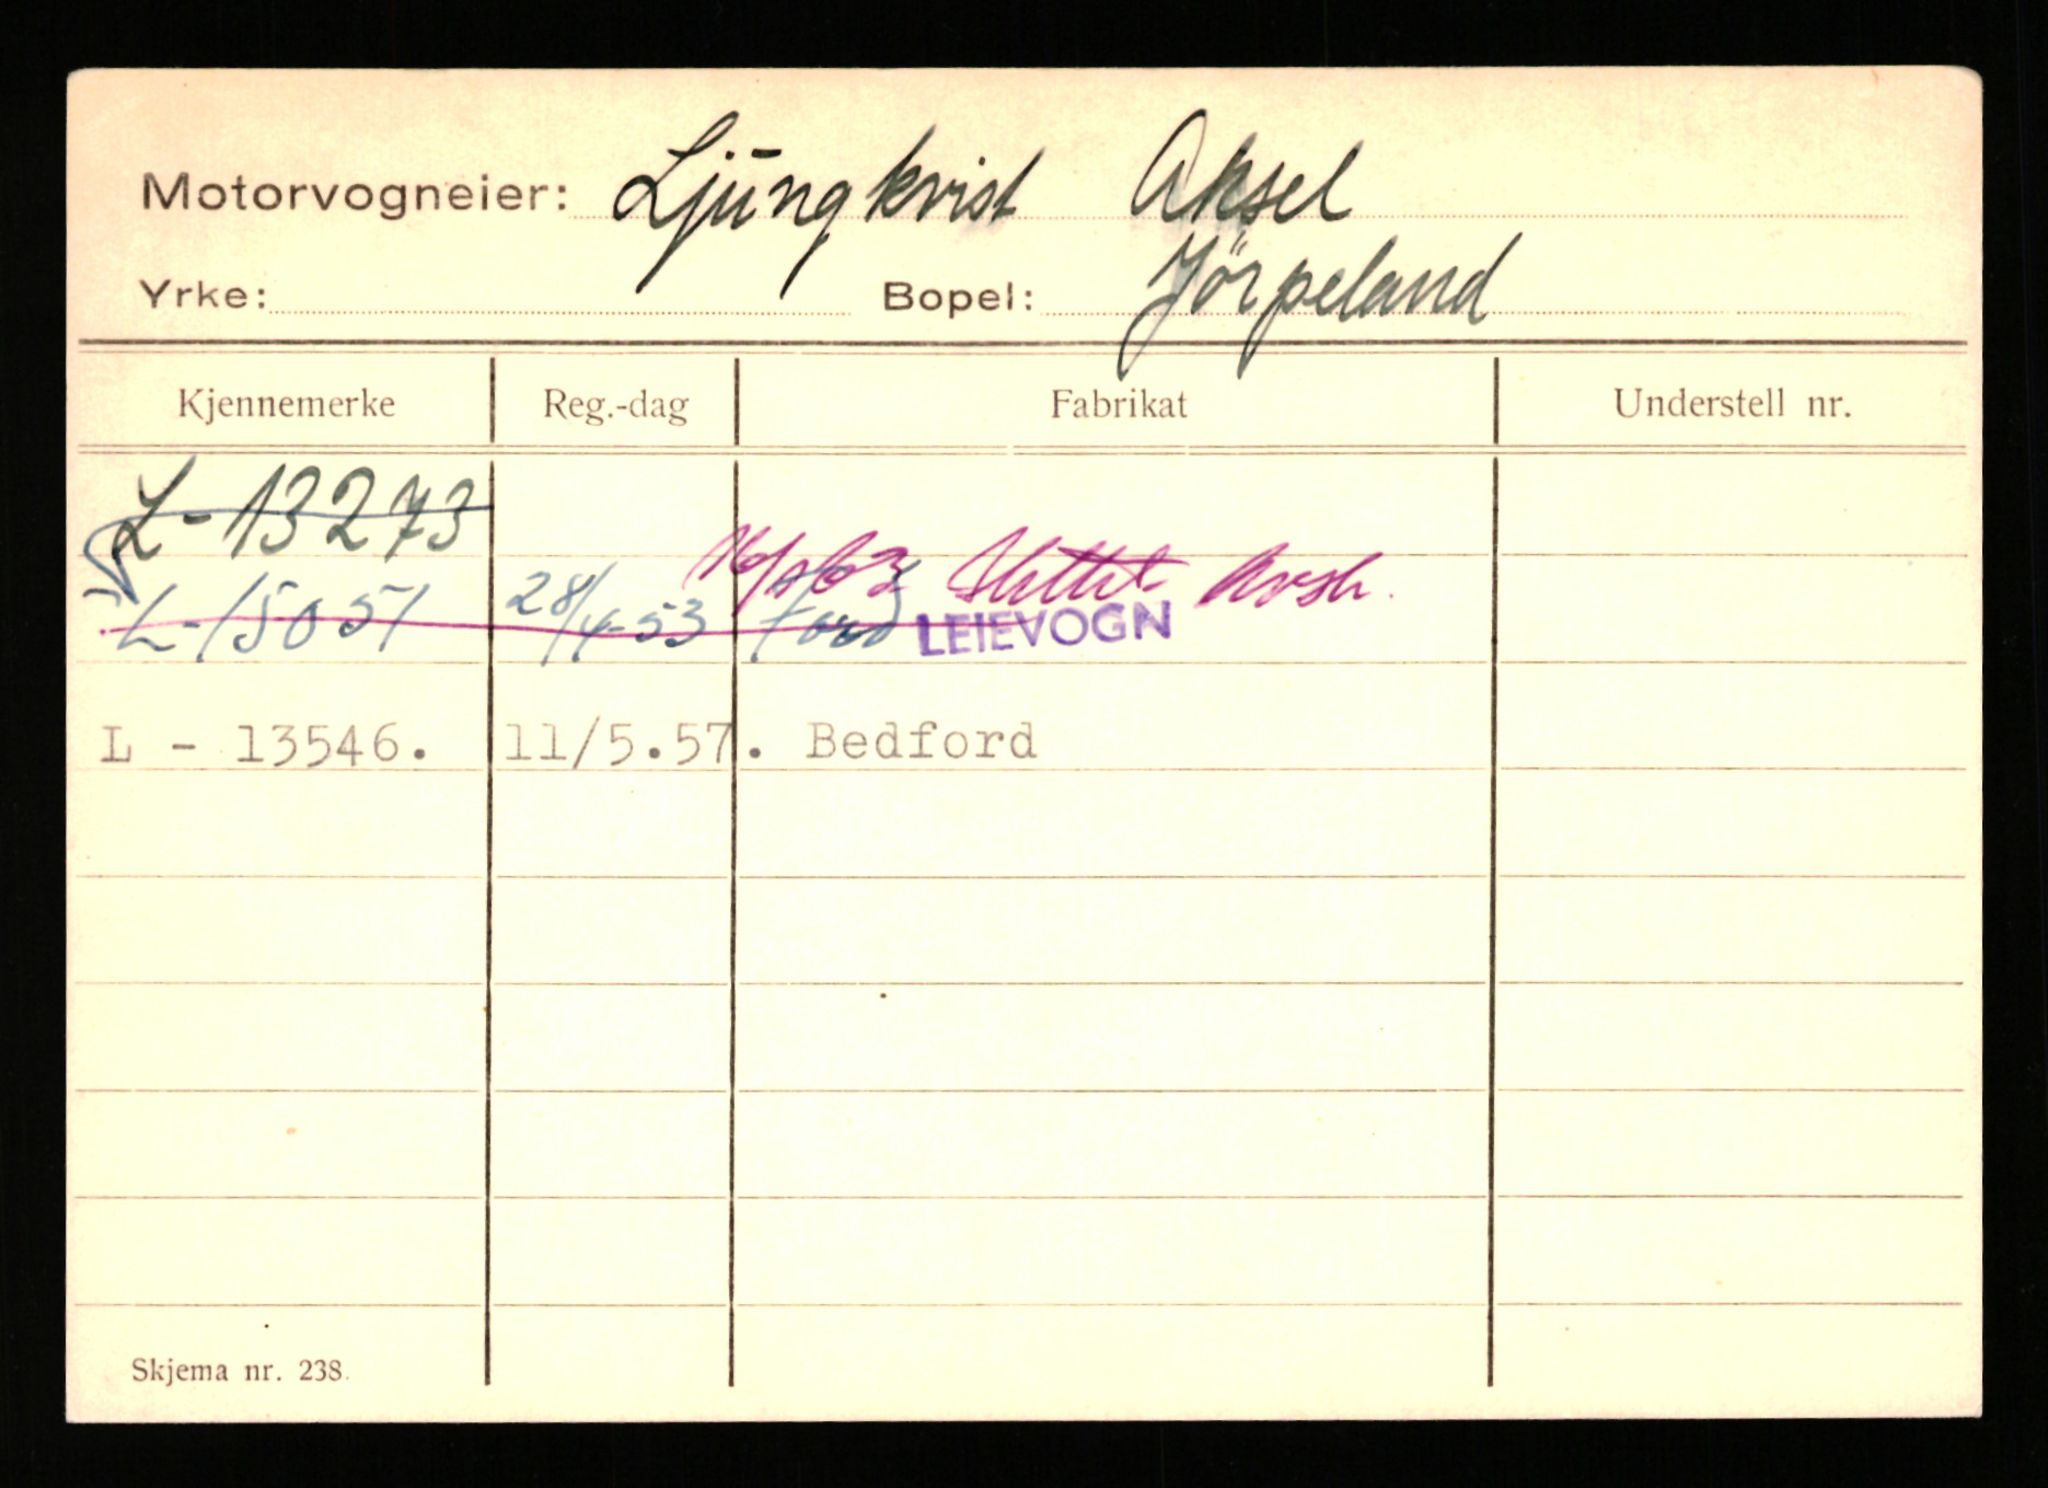 Motorvogneier: Ljūngkvist Aksel
Yrke: Bopel: Jörpeland
Kjennemerke Reg.-dag Fabrikat Understell nr.
L-13273
L-15051 28/4-53 Ford LEIEVOGN
L - 13546. 11/5.57. Bedford
Skjema nr. 238.